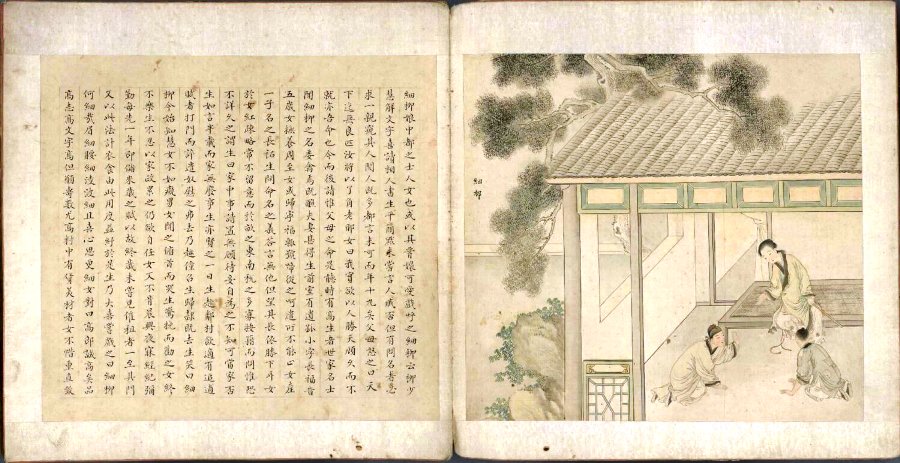 細柳娘中都之士人女也或以其腰嫖可愛戲呼之細柳云柳少
慧解文字喜讀相人書生平簡默未嘗言人臧否但有問名者必
求一親窺其人閱人既多都言未可而年十九矣父母怒之曰天
下迄無良匹汝將以丫角老耶女曰我實欲以人勝天顧久而不
就亦吾命也今而後請惟父母之命是聽時有高生者世家名士
聞細柳之名委禽焉既醮夫妻甚得生前室有遺孤小字長福時
五歲女撫養周至女或歸寧福輒號啼從之呵遣所不能止女產
一子名之長怙生問命名之義答言無他但望其長依膝下耳女
於女紅疎略常不留意而於畝之東南稅之多寡按籍而問惟恐
不詳久之謂生曰家中事請置無顧待妾自為之不知可當家否
生如言半載而家無廢事生亦賢之一日生赴鄰村飲適有追逋
賦者打門而誶遣奴慰之弗去乃趣僮召生歸隸既去生笑曰細
柳今始知慧女不如癡男女聞之俯首而哭生驚挽而勸之女終
不樂生不忍以家政累之仍欲自任女又不肯晨興夜寐經紀彌
勤每先一年即儲來歲之賦以故終歲未嘗見催租者一至其門
又以此法計衣食由此用度益紓於是生乃大喜嘗戲之曰細柳
何細哉眉細腰細凌波細且喜心思更細女對曰高郎誠高矣品
高志高文字高但願壽數尤高村中有貨美材者女不惜重直致
細柳